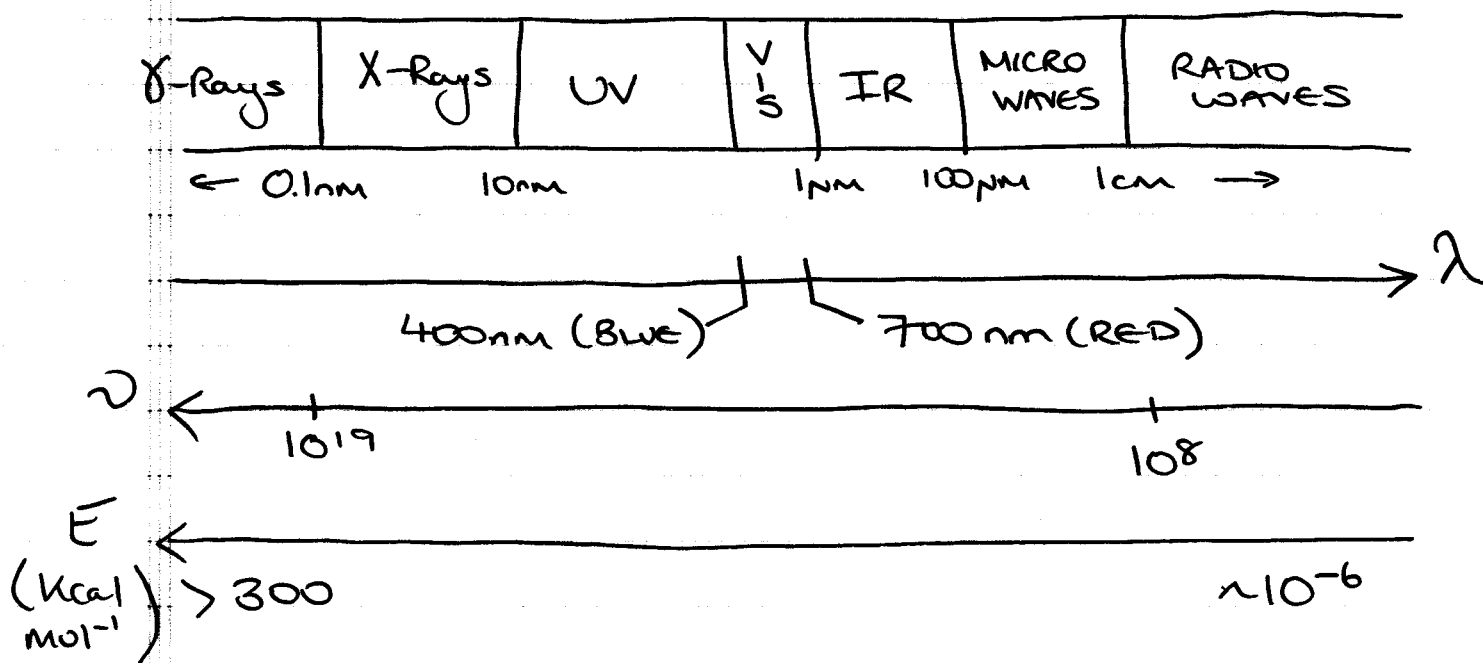 γ-Rays X-Rays UV VIS IR MICRO WAVES RADIO WAVES
← 0.1nm 10nm 1μm 100μm 1cm →
λ
400nm (BLUE) 700nm (RED)
ν
10¹⁹ 10⁸
E
(Kcal mol⁻¹) >300 ~10⁻⁶